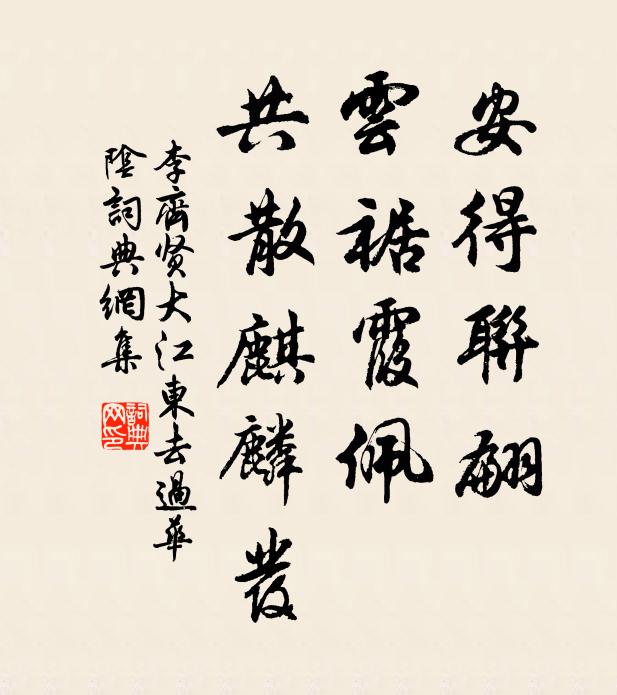 安得聯翩
雲裾霞佩
共散麒麟發
李齊贤大江東去過華
陰詞典網集
詞典网印